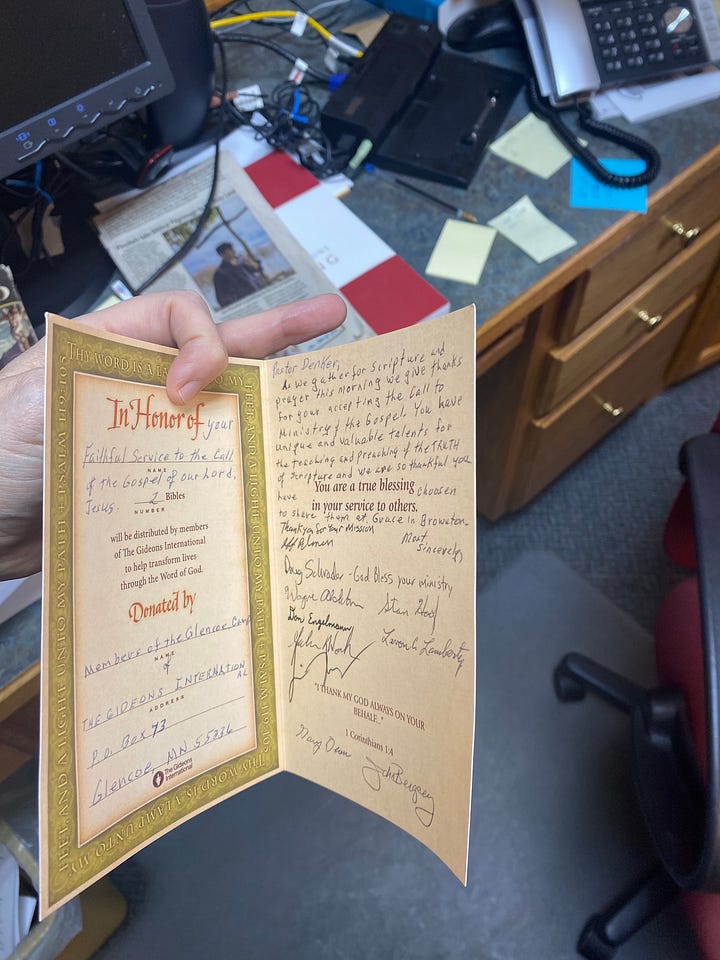 THY WORD IS A LAMP UNTO MY
FEET AND A LIGHT UNTO MY PATH + PSALM 119:105
FEET AND A LIGHT UNTO MY PATH + PSALM 119:105
THY WORD IS A LAMP UNTO MY
In Honor of your
Faithful Service to the Call
NAME
of the Gospel of our Lord,
Jesus. 2 Bibles
NUMBER
will be distributed by members
of The Gideons International
to help transform lives
through the Word of God.
Donated by
Members of the Glencoe Camp
NAME
of
THE GIDEONS INTERNATIONAL
ADDRESS
P.O. Box 73
Glencoe, MN 55336
The Gideons
International
Pastor Denker,
As we gather for Scripture and
prayer this morning we give thanks
for your accepting the Call to
Ministry of the Gospel. You have
unique and valuable talents for
the teaching and preaching of the TRUTH
of Scripture and we are so thankful you
have
You are a true blessing
chosen
in your service to others.
to share them at Grace in Brownton.
Thank you for Your Mission
Most
Sincerely
Doug Schrader - God Bless your ministry
Wayne
Stan
Don Engelmann
John
Levon G Lamberty
"I THANK MY GOD ALWAYS ON YOUR
BEHALF..."
1 Corinthians 1:4
Gary